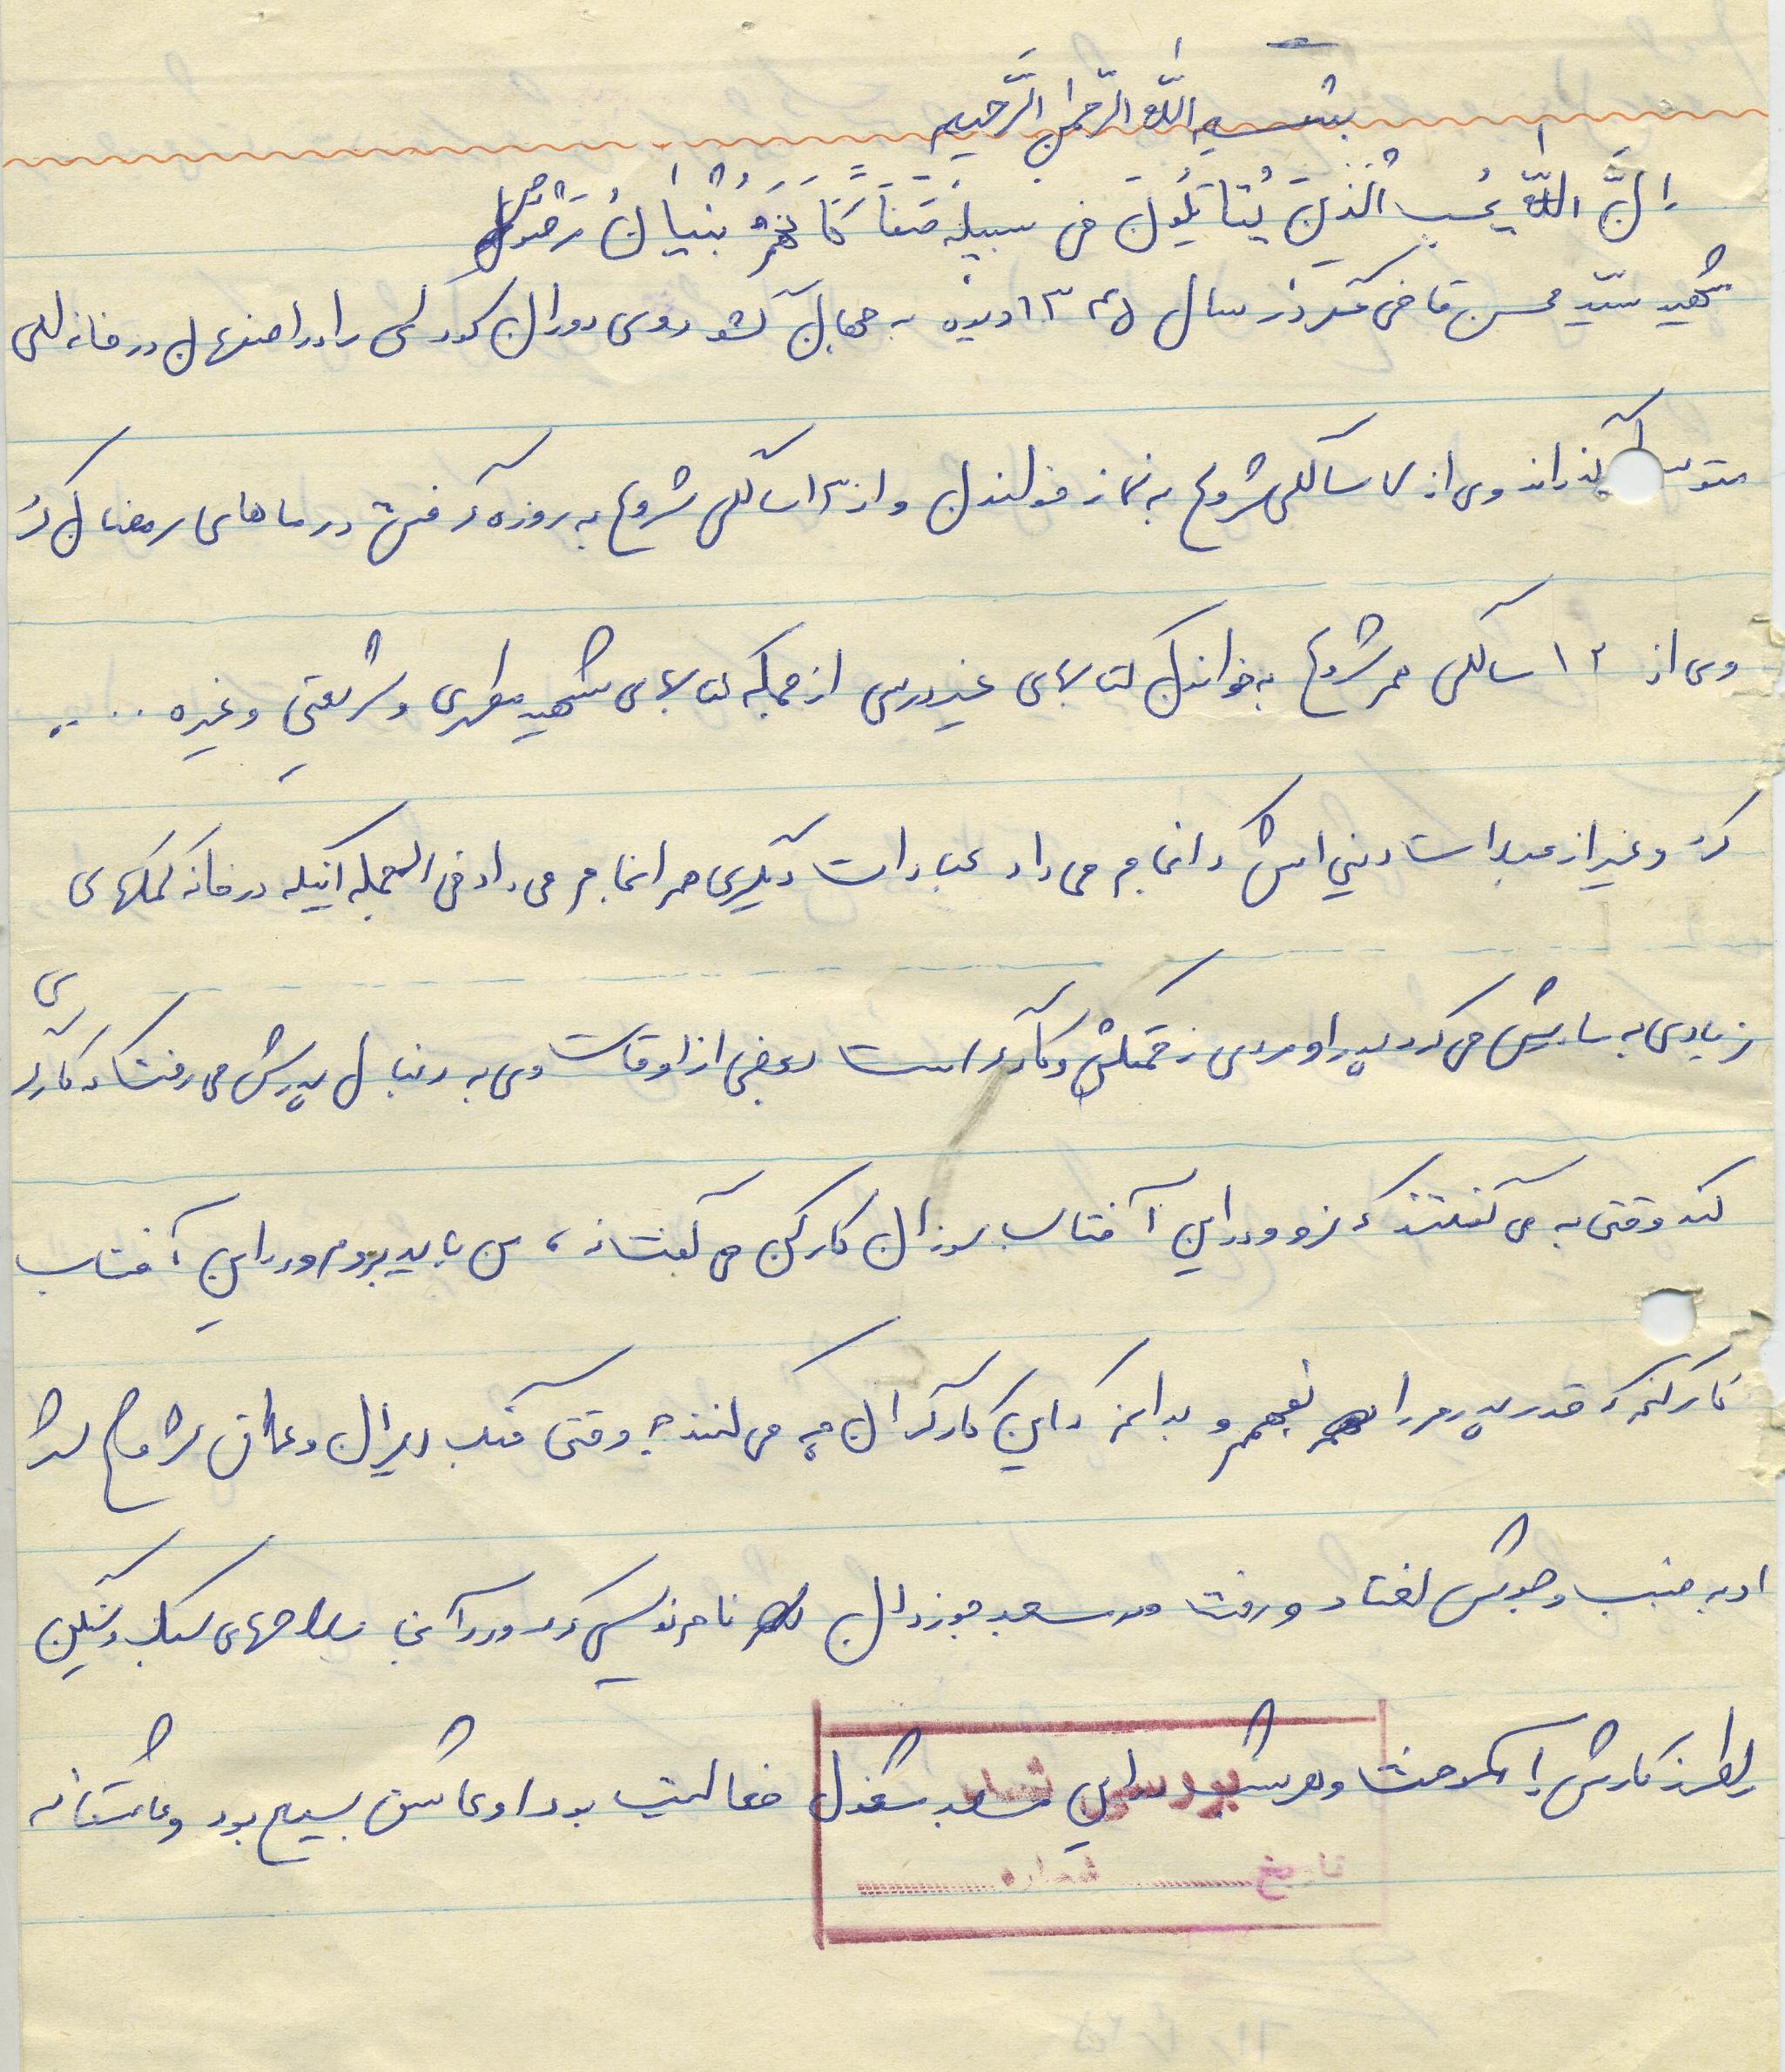 بسم الله الرحمن الرحیم
اِنَّ اللّهَ یُحِبُ الَّذینَ یُقاتِلُونَ فی سبیلِهِ صَفاً کَاَنَهُمْ بُنْیانٌ مَرْصُوصٌ
شهید سید محسن قاضی عسکر در سال ۱۳۴۵ دیده به جهان گشود وی دوران کودکی را در اصفهان در خانه‌ای
متوسط گذراند وی از ۷ سالگی شروع به نماز خواندن و از ۱۳ سالگی شروع به روزه گرفتن در ماهای رمضان کرد
وی از ۱۲ سالگی هم شروع به خواندن کتابهای غیر درسی از جمله کتابهای شهید مطهری و شریعتی و غیره ....
کرد و غیر از عبادات دینی اش که انجام می داد عبادات دیگری هم انجام می داد فی الجمله اینکه در خانه کمکهای
زیادی به مادرش می کرد پدر او مردی زحمتکش و کارگر است بعضی از اوقات وی به دنبال پدرش می رفت که کارگری
کند وقتی به می گفتند که نرو و در این آفتاب سوزان کار نکن می گفت نه ، من باید بروم و در این آفتاب
کار کنم که قدر پدرم را بفهمم و بدانم که این کارگران چه می کنند ؟ وقتی جنگ ایران و عراق شروع شد
او به جنب و جوش افتاد و رفت در مسجد جوزدان نام نویسی کرد و در آنجا سلاحهای سبک و سنگین
و طرز کارش را آموخت و هر شب در این مسجد مشغول فعالیت بود او عاشق بسیج بود و عاشقانه
بررسی شد
تاریخ ............ شماره ............